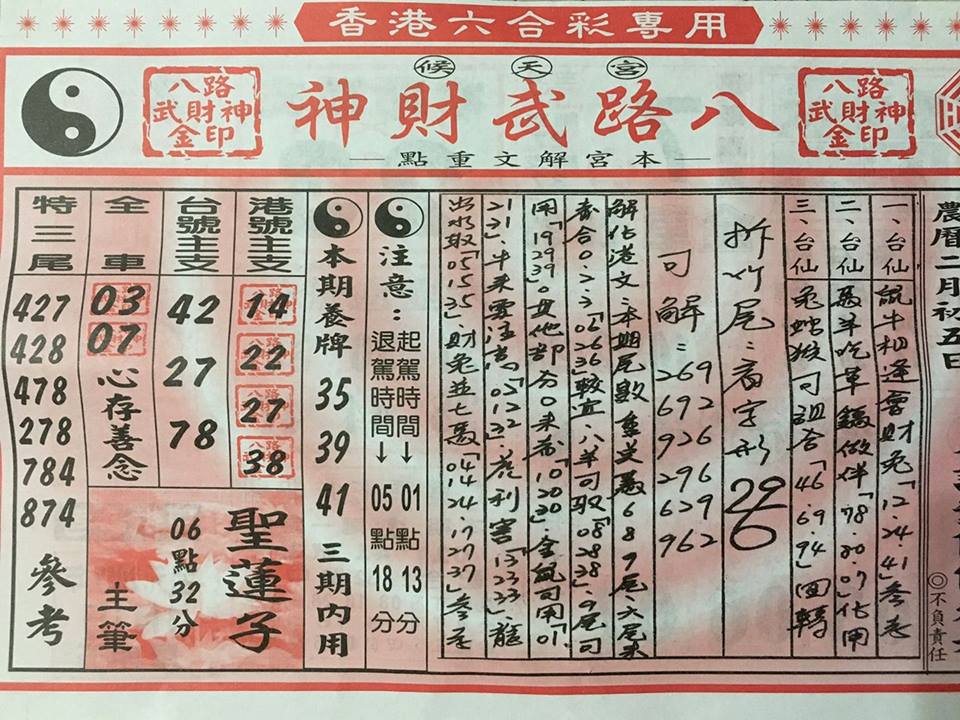 香港六合彩專用
候天宮
八路武財神
八路武財神金印
八路武財神金印
本宮解文重點
農曆二月初五日
◎不負責任
一、台仙 說牛相逢會財兔「12.24.41」參考
二、台仙 馬羊吃草 鷄做伴「78.80.07」化用
三、台仙 兔蛇猴可詛合「46.69.94」回轉
拆竹尾：看字形 296
可解：269 692 926 296 629 962
解佔港文：本期尾數 重送馬 6 8 9 尾 六尾來
看合0.2.3「06.26.36」較宜 八羊可取「08.28.38」.9尾可
用「19.29.39」0其他部分0來看「10.20.30」.金鼠可用「01.
21.31」.牛來要注意「05.12.32」.虎利害「13.23.33」.龍
出水取「05.15.35」財兔並七馬「04.14.24.17.27.37」參考
注意：
起駕時間→01點13分
退駕時間→05點18分
本期養牌 35 39 41 三期內用
港號主支
14
22
27
38
台號主支
42
27
78
全車
03
07
心存善念
特三尾
427
428
478
278
784
874
參考
聖蓮子
06點32分
主筆